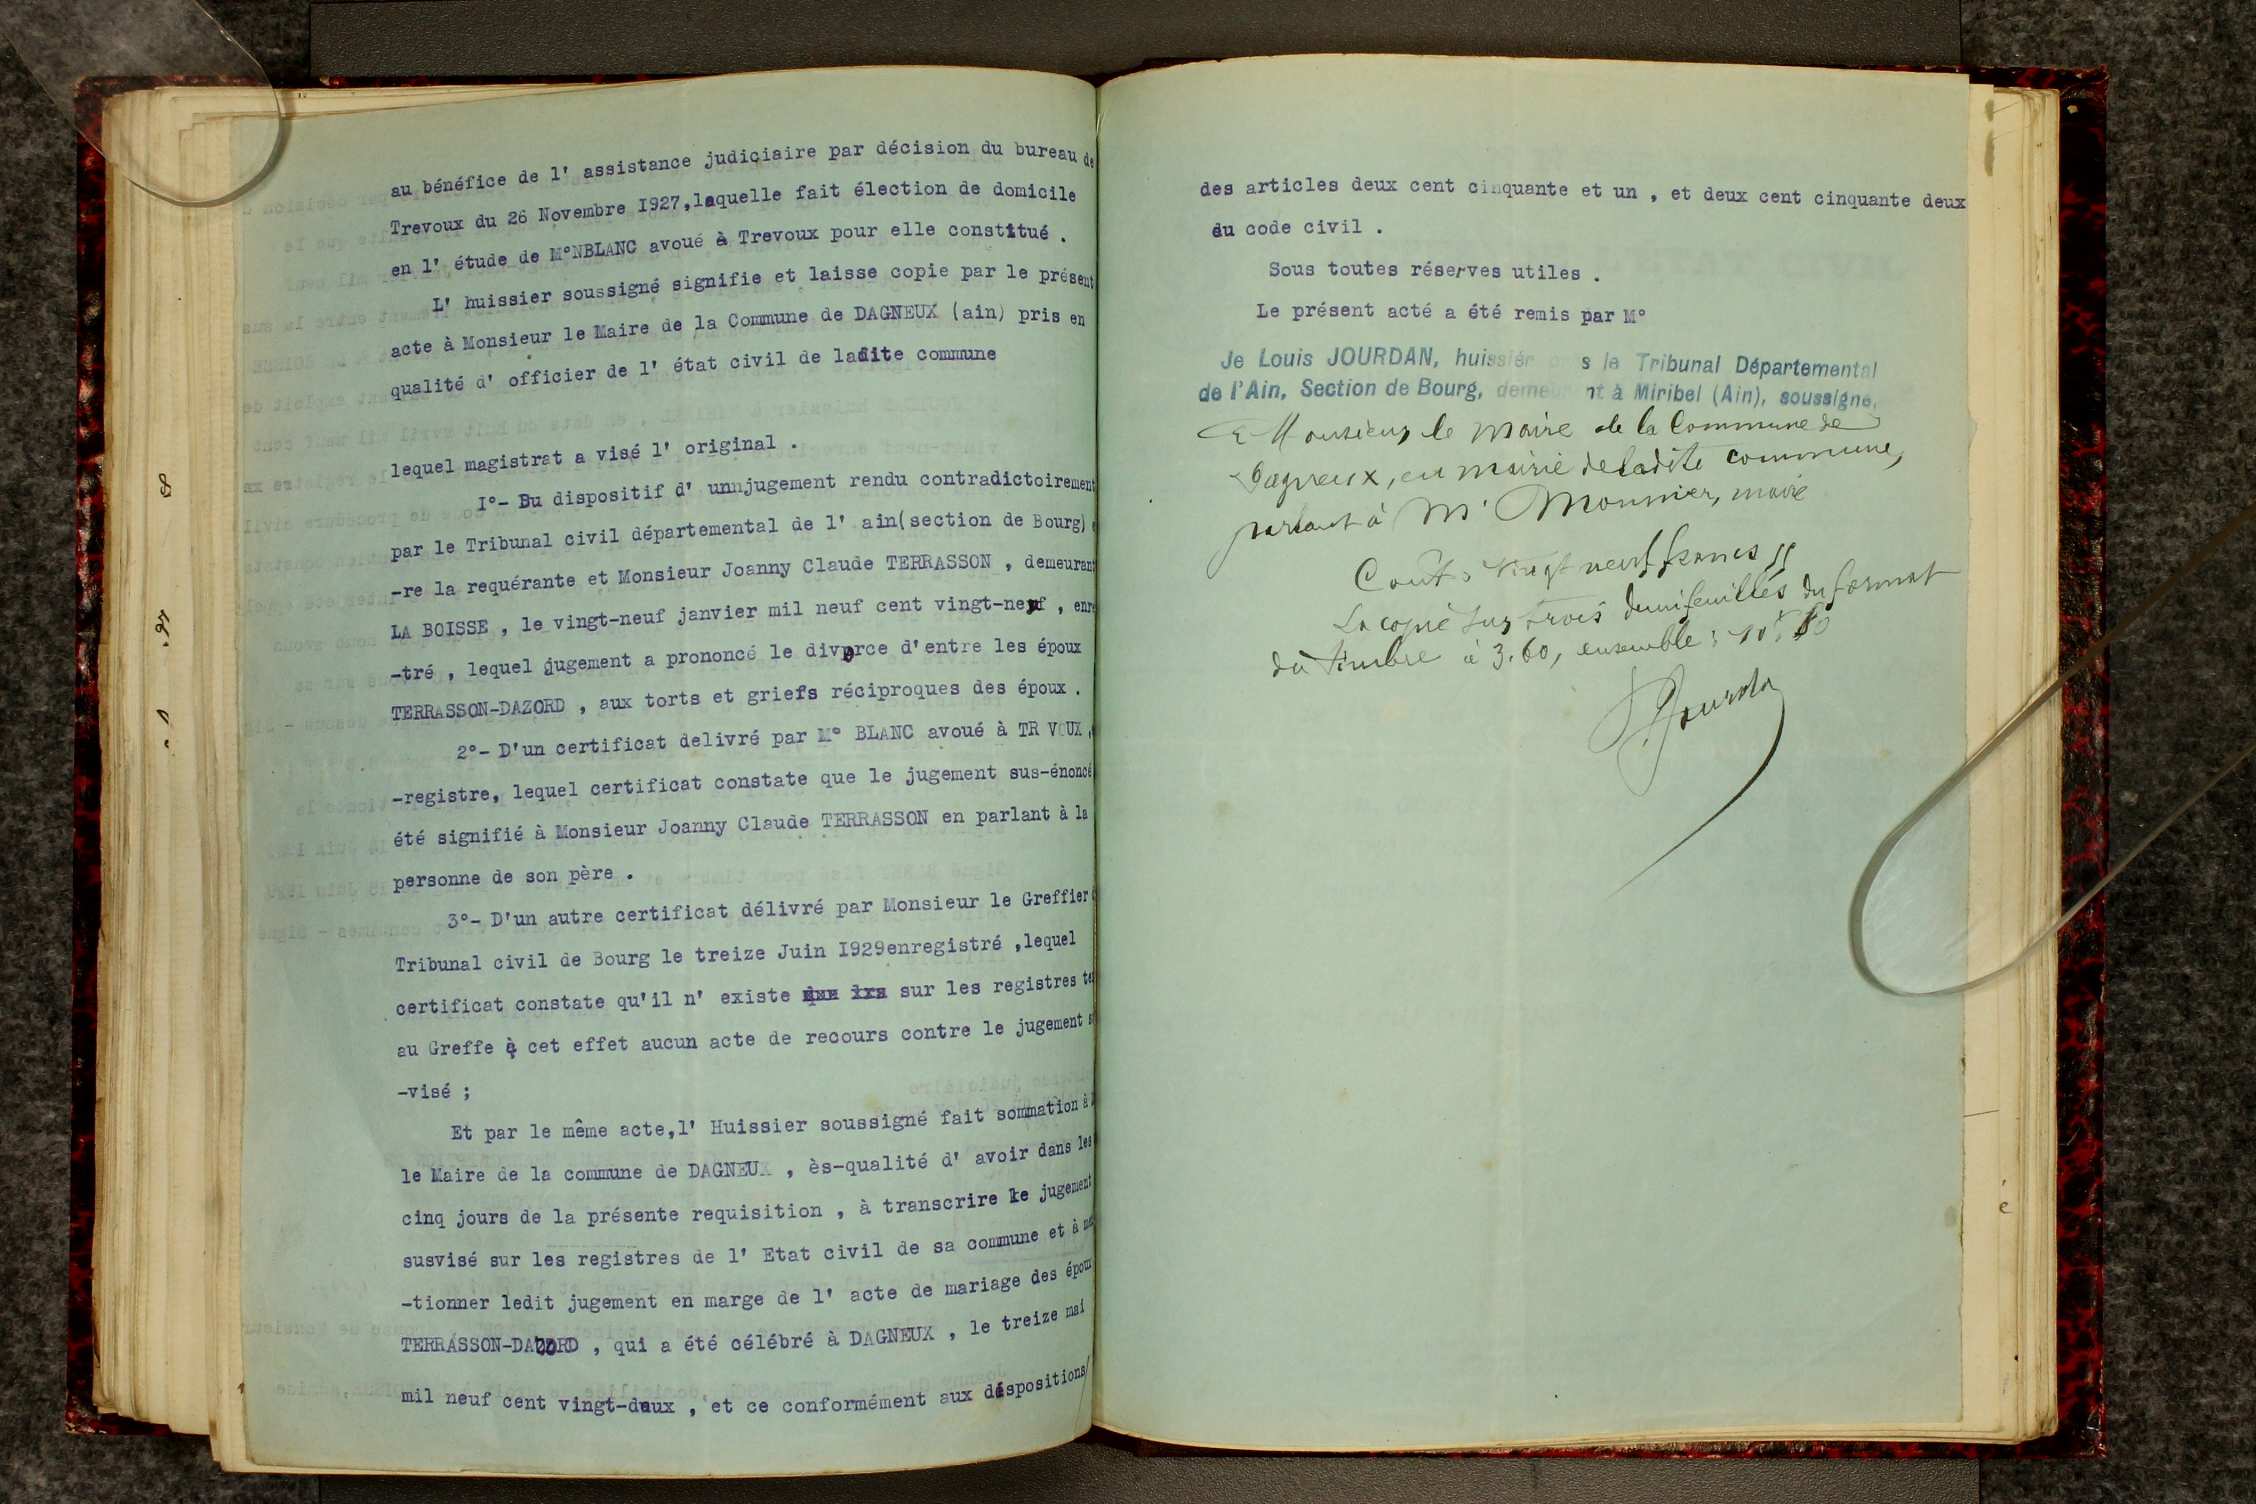 au bénéfice de l' assistance judiciaire par décision du bureau de
Trevoux du 26 Novembre I927,laquelle fait élection de domicile
en l' étude de M°NBLANC avoué à Trevoux pour elle constitué .
L' huissier soussigné signifie et laisse copie par le présent
acte à Monsieur le Maire de la Commune de DAGNEUX (ain) pris en
qualité d' officier de l' état civil de ladite commune
lequel magistrat a visé l' original .
I°- Du dispositif d' unnjugement rendu contradictoirement
par le Tribunal civil départemental de l' ain(section de Bourg)
-re la requérante et Monsieur Joanny Claude TERRASSON , demeurant
LA BOISSE , le vingt-neuf janvier mil neuf cent vingt-neuf , enre
-tré , lequel jugement a prononcé le divorce d'entre les époux
TERRASSON-DAZORD , aux torts et griefs réciproques des époux .
2°- D'un certificat delivré par M° BLANC avoué à TR VOUX ,
-registre, lequel certificat constate que le jugement sus-énoncé
été signifié à Monsieur Joanny Claude TERRASSON en parlant à la
personne de son père .
3°- D'un autre certificat délivré par Monsieur le Greffier
Tribunal civil de Bourg le treize Juin I929enregistré ,lequel
certificat constate qu'il n' existe sur les registres te
au Greffe à cet effet aucun acte de recours contre le jugement
-visé ;
Et par le même acte,l' Huissier soussigné fait sommation à
le Maire de la commune de DAGNEUX , ès-qualité d' avoir dans les
cinq jours de la présente requisition , à transcrire le jugement
susvisé sur les registres de l' Etat civil de sa commune et à
-tionner ledit jugement en marge de l' acte de mariage des époux
TERRASSON-DAZORD , qui a été célébré à DAGNEUX , le treize mai
mil neuf cent vingt-deux , et ce conformément aux dispositions/
des articles deux cent cinquante et un , et deux cent cinquante deux
du code civil .
Sous toutes réserves utiles .
Le présent acté a été remis par M°
Je Louis JOURDAN, huissier près le Tribunal Départemental
de l'Ain, Section de Bourg, demeurant à Miribel (Ain), soussigné,
à Monsieur le Maire de la Commune de
Dagneux, en mairie de ladite commune,
parlant à Mr Monnier, maire
Coût : vingt neuf francs
La copie sur trois demi feuilles du format
du timbre à 3.60, ensemble :
Jourdan